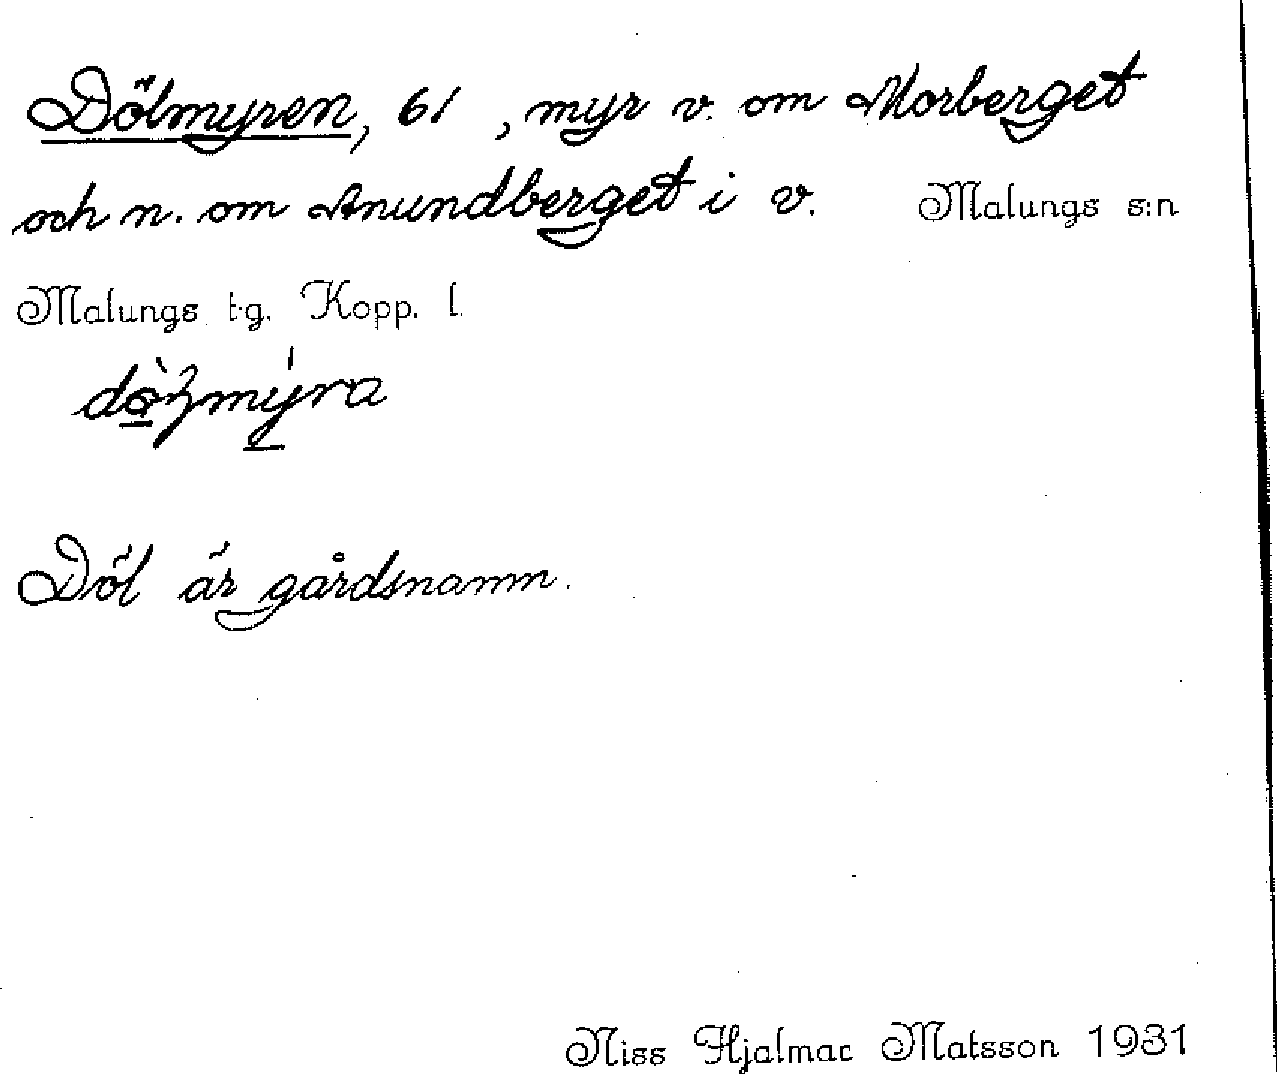 Dölmyren, 61, myr v. om Morberget
och n. om Anundberget i v. Malungs s:n
Malungs tg. Kopp. l.
Döl är gårdsnamn.
Niss Hjalmar Matsson 1931